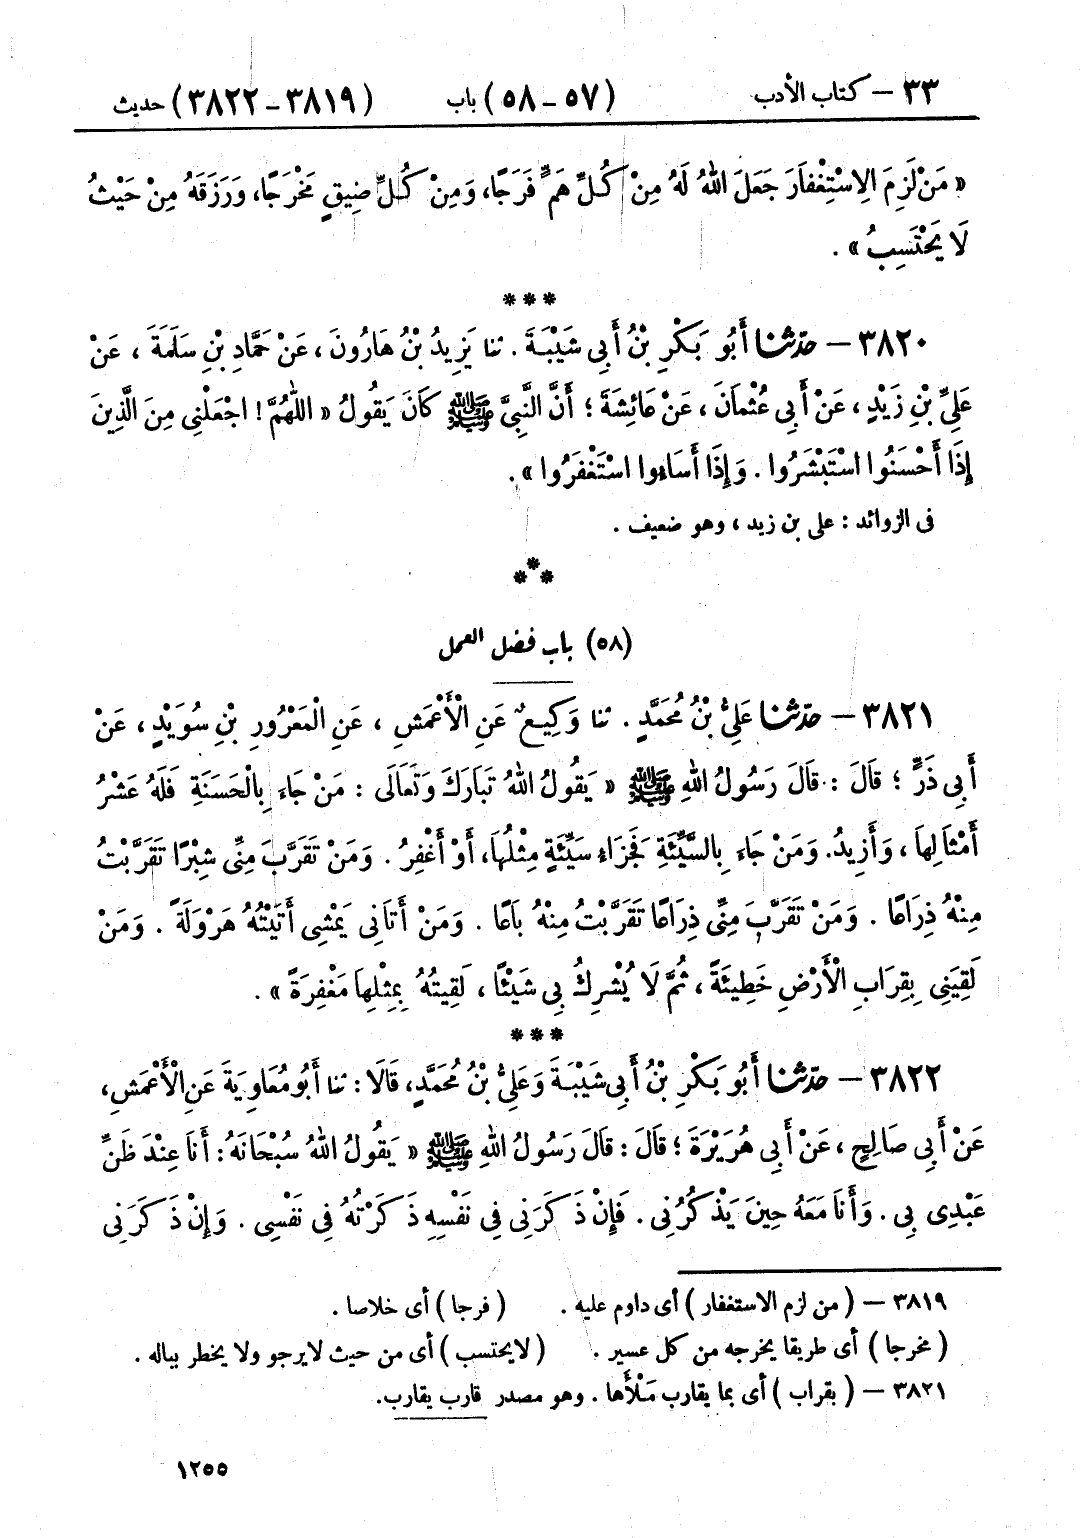 ٣٣ – كتاب الأدب (٥٧ – ٥٨) باب (٣٨١٩ – ٣٨٢٢) حديث
« مَنْ لَزِمَ الِاسْتِغْفَارَ جَعَلَ اللهُ لَهُ مِنْ كُلِّ هَمٍّ فَرَجًا، وَمِنْ كُلِّ ضِيقٍ مَخْرَجًا، وَرَزَقَهُ مِنْ حَيْثُ
لَا يَحْتَسِبُ » .
***
٣٨٢٠ – حدّثنا أَبُو بَكْرِ بْنُ أَبِي شَيْبَةَ . ثنا يَزِيدُ بْنُ هَارُونَ ، عَنْ حَمَّادِ بْنِ سَلَمَةَ ، عَنْ
عَلِيِّ بْنِ زَيْدٍ ، عَنْ أَبِي عُثْمَانَ ، عَنْ عَائِشَةَ ؛ أَنَّ النَّبِيَّ ﷺ كَانَ يَقُولُ « اللّٰهُمَّ ! اجْعَلْنِي مِنَ الَّذِينَ
إِذَا أَحْسَنُوا اسْتَبْشَرُوا . وَإِذَا أَسَاءُوا اسْتَغْفَرُوا » .
فى الزوائد : على بن زيد ، وهو ضعيف .
***
(٥٨) باب فضل العمل
٣٨٢١ – حدّثنا عَلِيُّ بْنُ مُحَمَّدٍ . ثنا وَكِيعٌ عَنِ الْأَعْمَشِ ، عَنِ الْمَعْرُورِ بْنِ سُوَيْدٍ ، عَنْ
أَبِي ذَرٍّ ؛ قَالَ : قَالَ رَسُولُ اللهِ ﷺ « يَقُولُ اللهُ تَبَارَكَ وَتَعَالَى : مَنْ جَاءَ بِالْحَسَنَةِ فَلَهُ عَشْرُ
أَمْثَالِهَا ، وَأَزِيدُ. وَمَنْ جَاءَ بِالسَّيِّئَةِ فَجَزَاءُ سَيِّئَةٍ مِثْلُهَا، أَوْ أَغْفِرُ . وَمَنْ تَقَرَّبَ مِنِّي شِبْرًا تَقَرَّبْتُ
مِنْهُ ذِرَاعًا . وَمَنْ تَقَرَّبَ مِنِّي ذِرَاعًا تَقَرَّبْتُ مِنْهُ بَاعًا . وَمَنْ أَتَانِي يَمْشِي أَتَيْتُهُ هَرْوَلَةً . وَمَنْ
لَقِيَنِي بِقِرَابِ الْأَرْضِ خَطِيئَةً ، ثُمَّ لَا يُشْرِكُ بِي شَيْئًا ، لَقِيتُهُ بِمِثْلِهَا مَغْفِرَةً » .
***
٣٨٢٢ – حدّثنا أَبُو بَكْرِ بْنُ أَبِي شَيْبَةَ وَعَلِيُّ بْنُ مُحَمَّدٍ، قَالَا : ثنا أَبُو مُعَاوِيَةَ عَنِ الْأَعْمَشِ،
عَنْ أَبِي صَالِحٍ ، عَنْ أَبِي هُرَيْرَةَ ؛ قَالَ : قَالَ رَسُولُ اللهِ ﷺ « يَقُولُ اللهُ سُبْحَانَهُ : أَنَا عِنْدَ ظَنِّ
عَبْدِي بِي . وَأَنَا مَعَهُ حِينَ يَذْكُرُنِي . فَإِنْ ذَكَرَنِي فِي نَفْسِهِ ذَكَرْتُهُ فِي نَفْسِي . وَإِنْ ذَكَرَنِي
٣٨١٩ – ( من لزم الاستغفار ) أى داوم عليه . ( فرجا ) أى خلاصا .
( مخرجا ) أى طريقا يخرجه من كل عسير . ( لا يحتسب ) أى من حيث لا يرجو ولا يخطر بباله .
٣٨٢١ – ( بقراب ) أى بما يقارب مَلْأَها . وهو مصدر قارب يقارب.
١٢٥٥